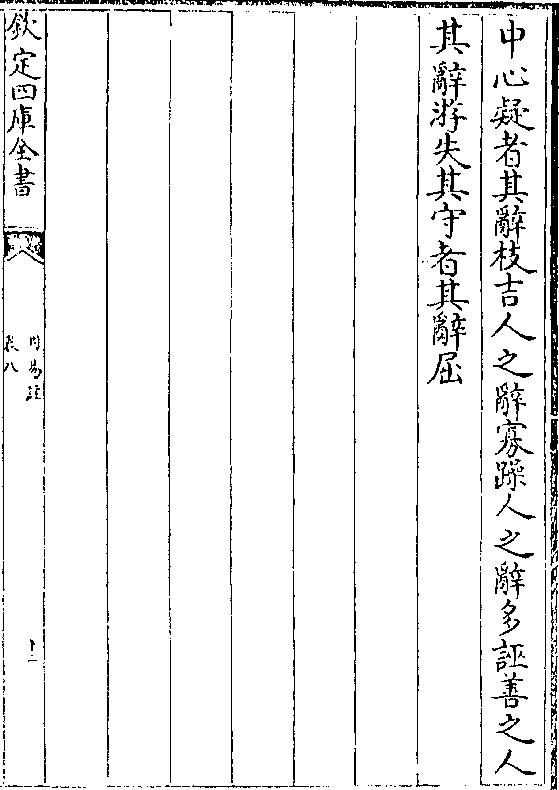 中心疑者其辭枝吉人之辭寡躁人之辭多誣善之人
其辭游失其守者其辭屈
欽定四庫全書
周易註
卷八
十二